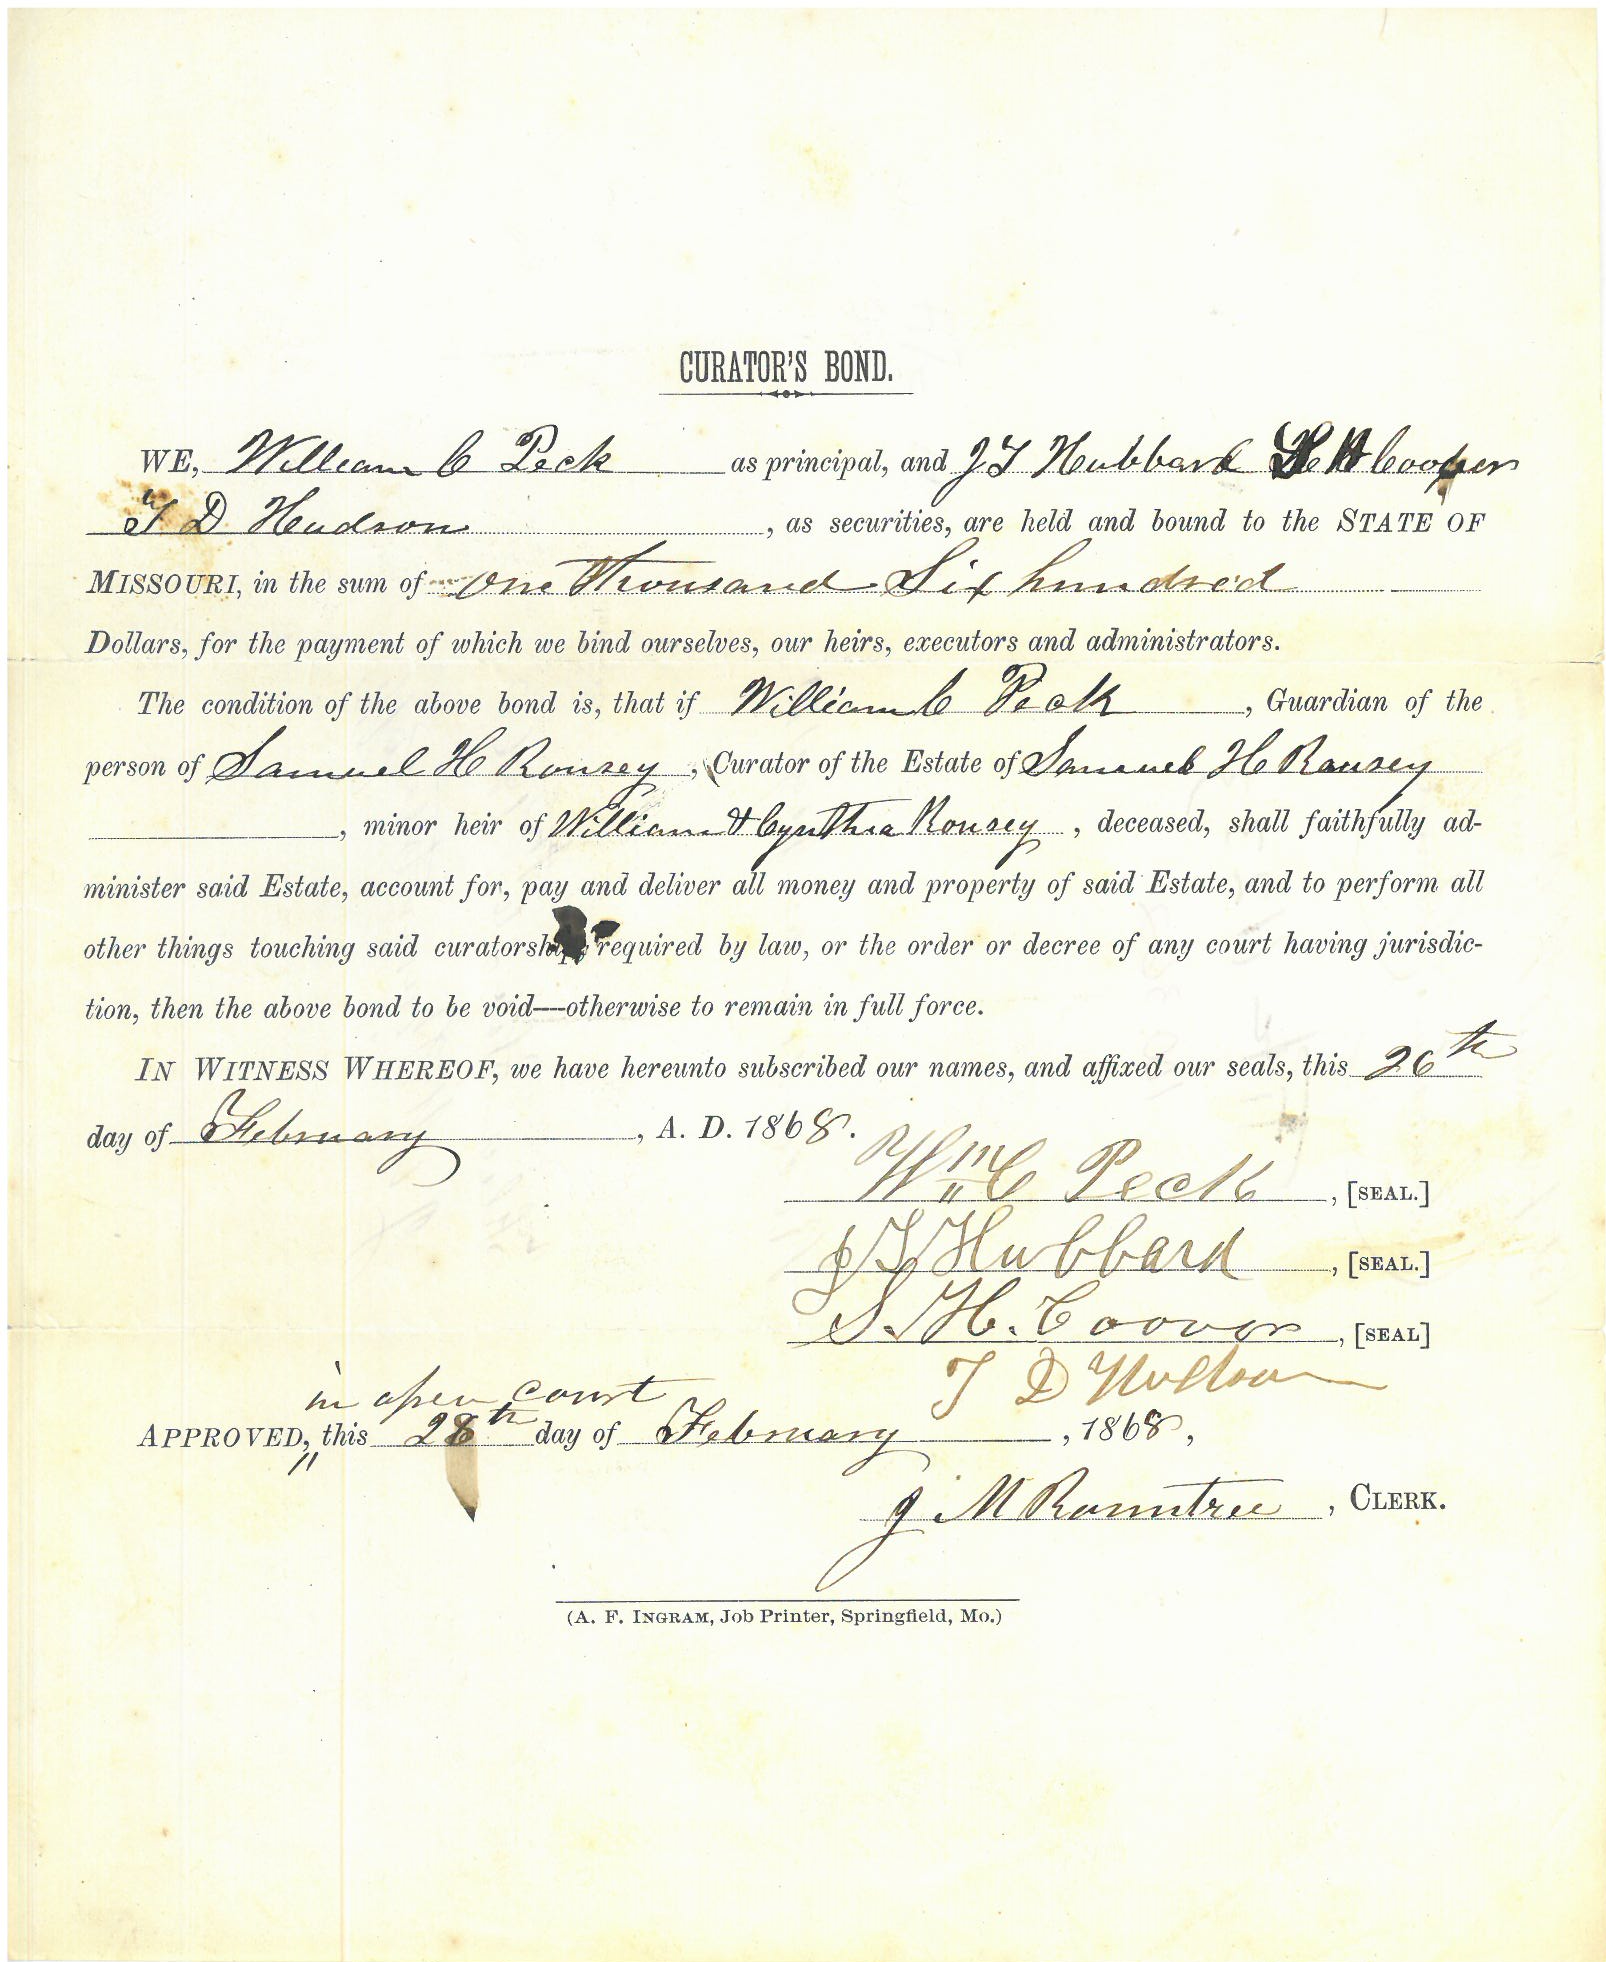 CURATOR'S BOND.
WE, William C Peck as principal, and J T Hubbard S H Coover
T D Hudson, as securities, are held and bound to the STATE OF
MISSOURI, in the sum of one Thousand Six hundred
Dollars, for the payment of which we bind ourselves, our heirs, executors and administrators.
The condition of the above bond is, that if William C Peck, Guardian of the
person of Samuel H Rousey, Curator of the Estate of Samuel H Rousey
, minor heir of William & Cynthia Rousey, deceased, shall faithfully ad-
minister said Estate, account for, pay and deliver all money and property of said Estate, and to perform all
other things touching said curatorship, required by law, or the order or decree of any court having jurisdic-
tion, then the above bond to be void—otherwise to remain in full force.
IN WITNESS WHEREOF, we have hereunto subscribed our names, and affixed our seals, this 26th
day of February, A. D. 1868.
Wm C Peck, [SEAL.]
J T Hubbard, [SEAL.]
S. H. Coover, [SEAL]
T D Hudson
in open court
APPROVED, this 26th day of February, 1868,
J M Rountree, CLERK.
(A. F. INGRAM, Job Printer, Springfield, Mo.)